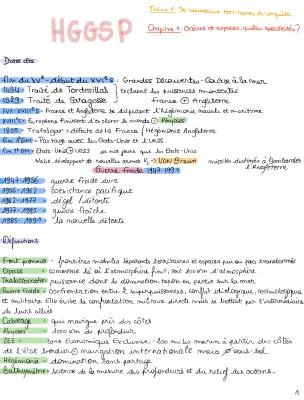 Thème 1: De nouveaux territoires de conquête
HGGSP
Chapitre 1: Océans et espaces, quelles spécificités?
Dates clés
fin du XVe - début du XVIe S - Grandes Découvertes - Course à la mer
1494 Traité de Tordesillas
1529 Traité de Saragosse
excluent les puissances montantes
France Angleterre
XVII-XVIIIe S - France et Angleterre se disputent l'hégémonie navale et maritime
XVIIIe S - Européens finissent d'explorer le monde Abysses
Trafalgar → défaite de la France / Hégémonie Anglaise
Partage avec les États-Unis et l'URSS
États-Unis URSS
Nazis développent de nouvelles armes V2 → Von Braun missiles destinés à bombarder
l'Angleterre
Guerre froide 1947-1991
1947-1956 guerre froide dure
coexistence pacifique
dégel / détente
guerre fraîche
la nouvelle détente
Définitions
Front pionnier - frontières mobiles séparants territoires et espaces peu ou pas transformés
Espace - commence là où l'atmosphère finit, soit 100 km d'atmosphère
Thalassocratie - puissance dont la domination repose en partie sur la mer
Guerre froide - Confrontation entre 2 superpuissances, conflit idéologique, technologique
et militaire. Elle évite la confrontation militaire directe mais se battent par l'intermédiaire
de leurs alliés
Cabotage - qui navigue près des côtes
Abysses - de profondeur
ZEE - Zone Économique Exclusive. 200 milles marins à partir des côtes
de l'état bordier navigation internationale mais sous-sol
Hégémonie - domination sans partage
Bathymétrie - science de la mesure des profondeurs et du relief des océans.
1